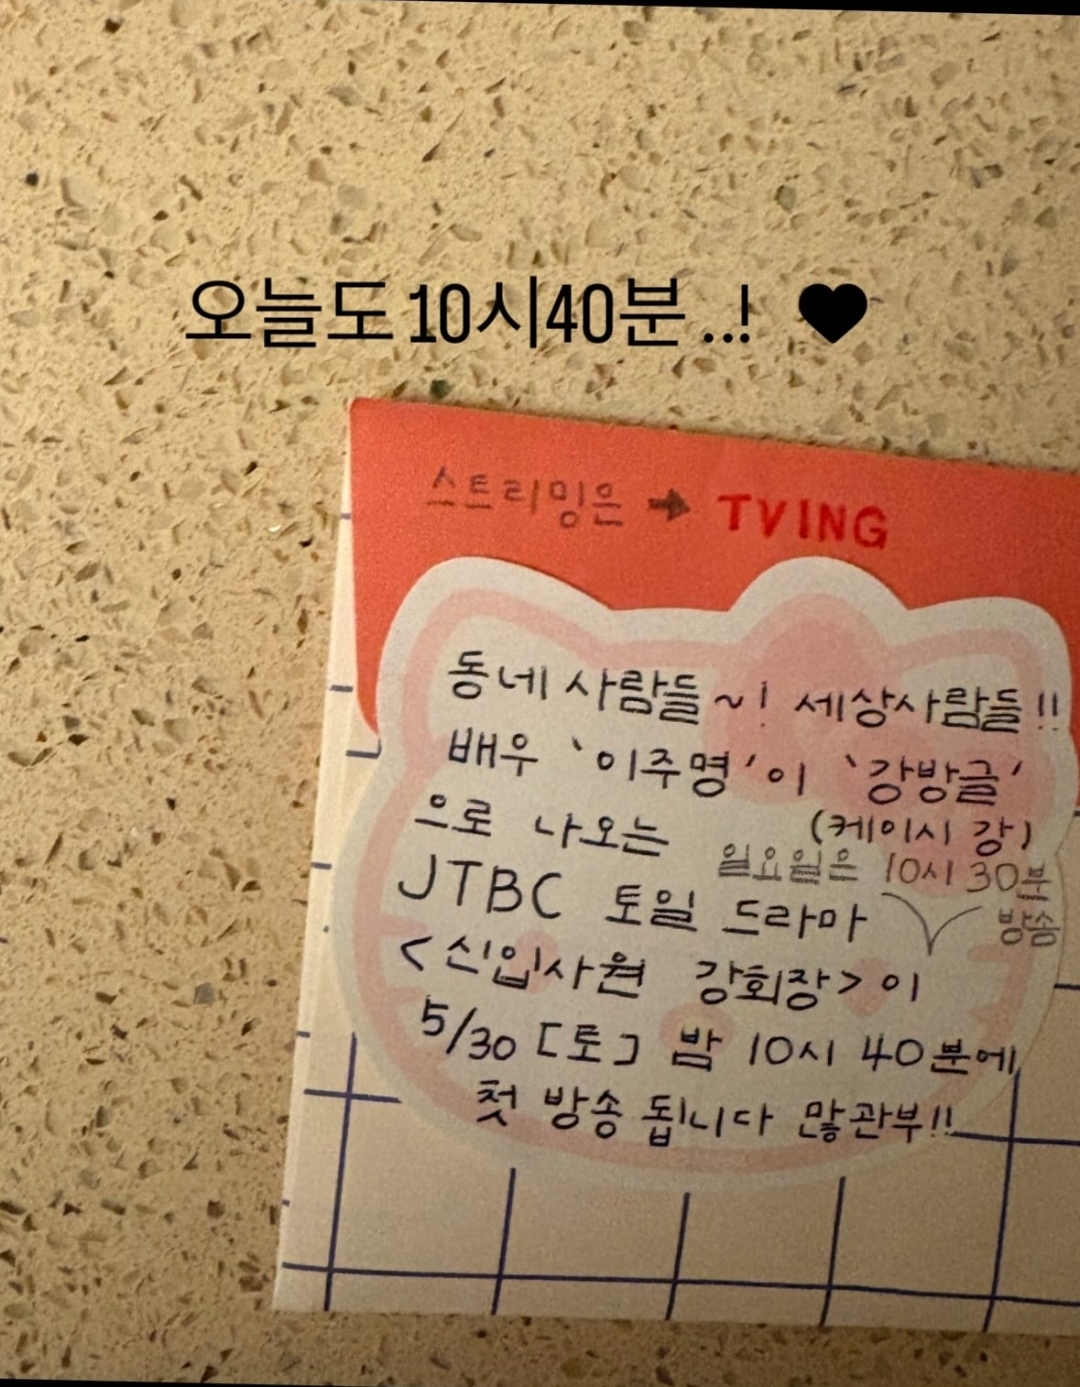 오늘도 10시40분..! ♥
스트리밍은 → TVING
동네 사람들~! 세상사람들!!
배우 '이주명'이 '강방글'
으로 나오는 (케이시 강)
일요일은 10시 30분
방송
JTBC 토일 드라마
<신입사원 강회장>이
5/30 [토] 밤 10시 40분에
첫 방송 됩니다 많관부!!